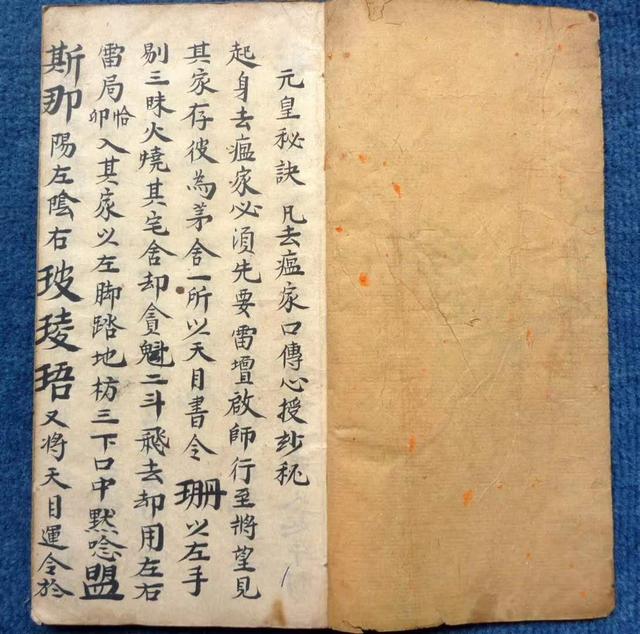 元皇秘訣 凡去瘟家口傳心授玅秘
起身去瘟家必須先要雷壇啟師行至將望見
其家存彼為茅舍一所以天目書令 珊 以左手
剔三昧火燒其宅舍却貪魁二斗飛去却用左右
雷局卯恰入其家以左脚踏地枋三下口中黙唸盟
斯那 陽左陰右 玻琺珸 又將天目運令於